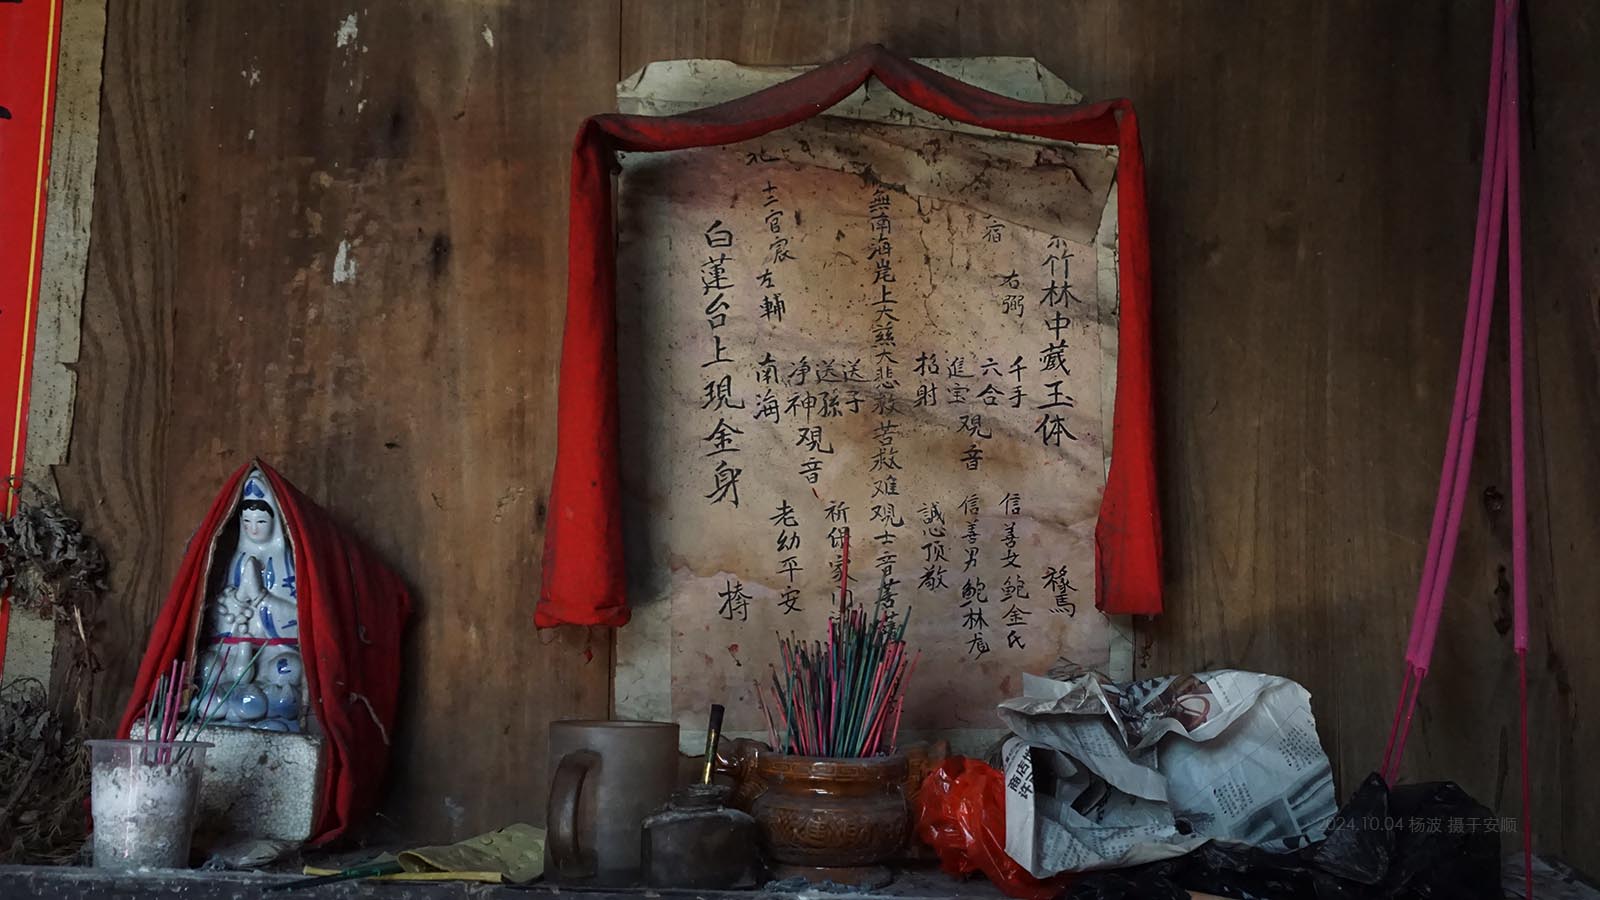 竹林中藏玉体
宿
右弼
千手
六合
進宝
招射
观音
信善女鲍金氏
信善男鲍林
誠心顶敬
無南海岸上大慈大悲救苦救难观士音菩薩
送子
送孫
净神
南海
观音
祈保家门
老幼平安
北
十三官宸
左輔
白蓮台上現金身
商店
许
2024.10.04 杨波 摄于安顺